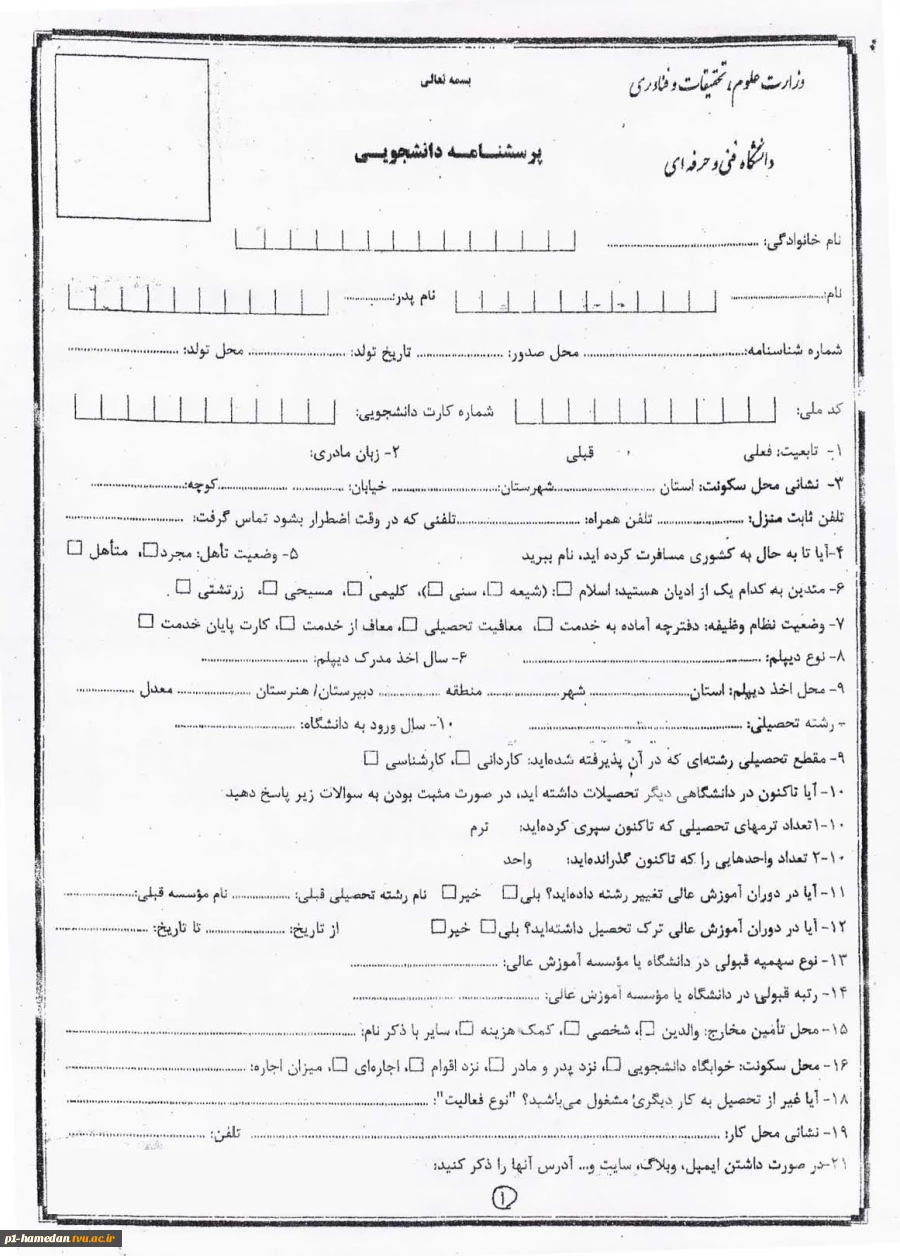 بسمه تعالی
وزارت علوم، تحقیقات و فناوری
پرسشنامه دانشجویی
دانشگاه فنی و حرفه ای
نام خانوادگی:
نام: نام پدر:
شماره شناسنامه: محل صدور: تاریخ تولد: محل تولد:
کد ملی: شماره کارت دانشجویی:
۱- تابعیت: فعلی قبلی ۲- زبان مادری:
۳- نشانی محل سکونت: استان شهرستان: خیابان: کوچه:
تلفن ثابت منزل: تلفن همراه: تلفنی که در وقت اضطرار بشود تماس گرفت:
۴-آیا تا به حال به کشوری مسافرت کرده اید، نام ببرید ۵- وضعیت تأهل: مجرد□، متأهل □
۶- متدین به کدام یک از ادیان هستید: اسلام □: (شیعه □، سنی □)، کلیمی □، مسیحی □، زرتشتی □ .
۷- وضعیت نظام وظیفه: دفترچه آماده به خدمت □، معافیت تحصیلی □، معاف از خدمت □، کارت پایان خدمت □
۸- نوع دیپلم: ۶- سال اخذ مدرک دیپلم:
۹- محل اخذ دیپلم: استان شهر منطقه دبیرستان/ هنرستان معدل
- رشته تحصیلی: ۱۰- سال ورود به دانشگاه:
۹- مقطع تحصیلی رشته‌ای که در آن پذیرفته شده‌اید: کاردانی □، کارشناسی □
۱۰- آیا تاکنون در دانشگاهی دیگر تحصیلات داشته اید، در صورت مثبت بودن به سوالات زیر پاسخ دهید
۱-۱۰تعداد ترمهای تحصیلی که تاکنون سپری کرده‌اید: ترم
۲-۱۰ تعداد واحدهایی را که تاکنون گذرانده‌اید: واحد
۱۱- آیا در دوران آموزش عالی تغییر رشته داده‌اید؟ بلی□ خیر□ نام رشته تحصیلی قبلی: نام مؤسسه قبلی:
۱۲- آیا در دوران آموزش عالی ترک تحصیل داشته‌اید؟ بلی□ خیر□ از تاریخ: تا تاریخ:
۱۳- نوع سهمیه قبولی در دانشگاه یا مؤسسه آموزش عالی:
۱۴- رتبه قبولی در دانشگاه یا مؤسسه آموزش عالی:
۱۵- محل تأمین مخارج: والدین □، شخصی □، کمک هزینه □، سایر با ذکر نام:
۱۶- محل سکونت: خوابگاه دانشجویی □، نزد پدر و مادر □، نزد اقوام □، اجاره‌ای □، میزان اجاره:
۱۸- آیا غیر از تحصیل به کار دیگری مشغول می‌باشید؟ "نوع فعالیت":
۱۹- نشانی محل کار: تلفن:
۲۱-در صورت داشتن ایمیل، وبلاگ، سایت و... آدرس آنها را ذکر کنید:
۱
p1-hamedan.tvu.ac.ir